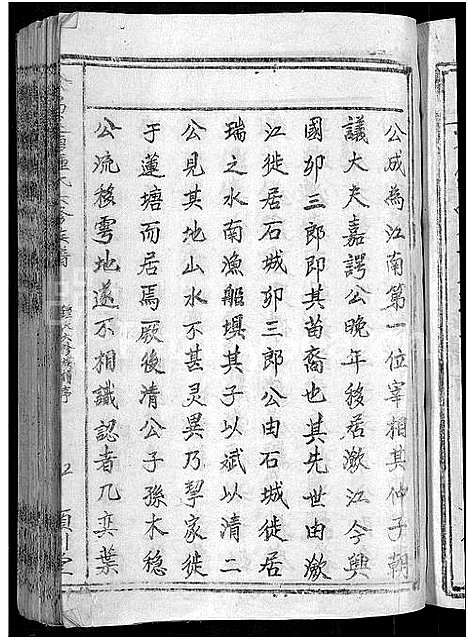 公成為江南第一位宰相其仲子朝
議大夫嘉諤公晚年移居潋江今興
國卯三郎即其苗裔也其先世由潋
江徙居石城卯三郎公由石城徙居
瑞之水南漁艌塤其子以斌以清二
公見其地山水不甚灵異乃挈家徙
于蓮塘而居焉厥後清公子孫木穏
公流移雩地遂不相識認者几奕葉